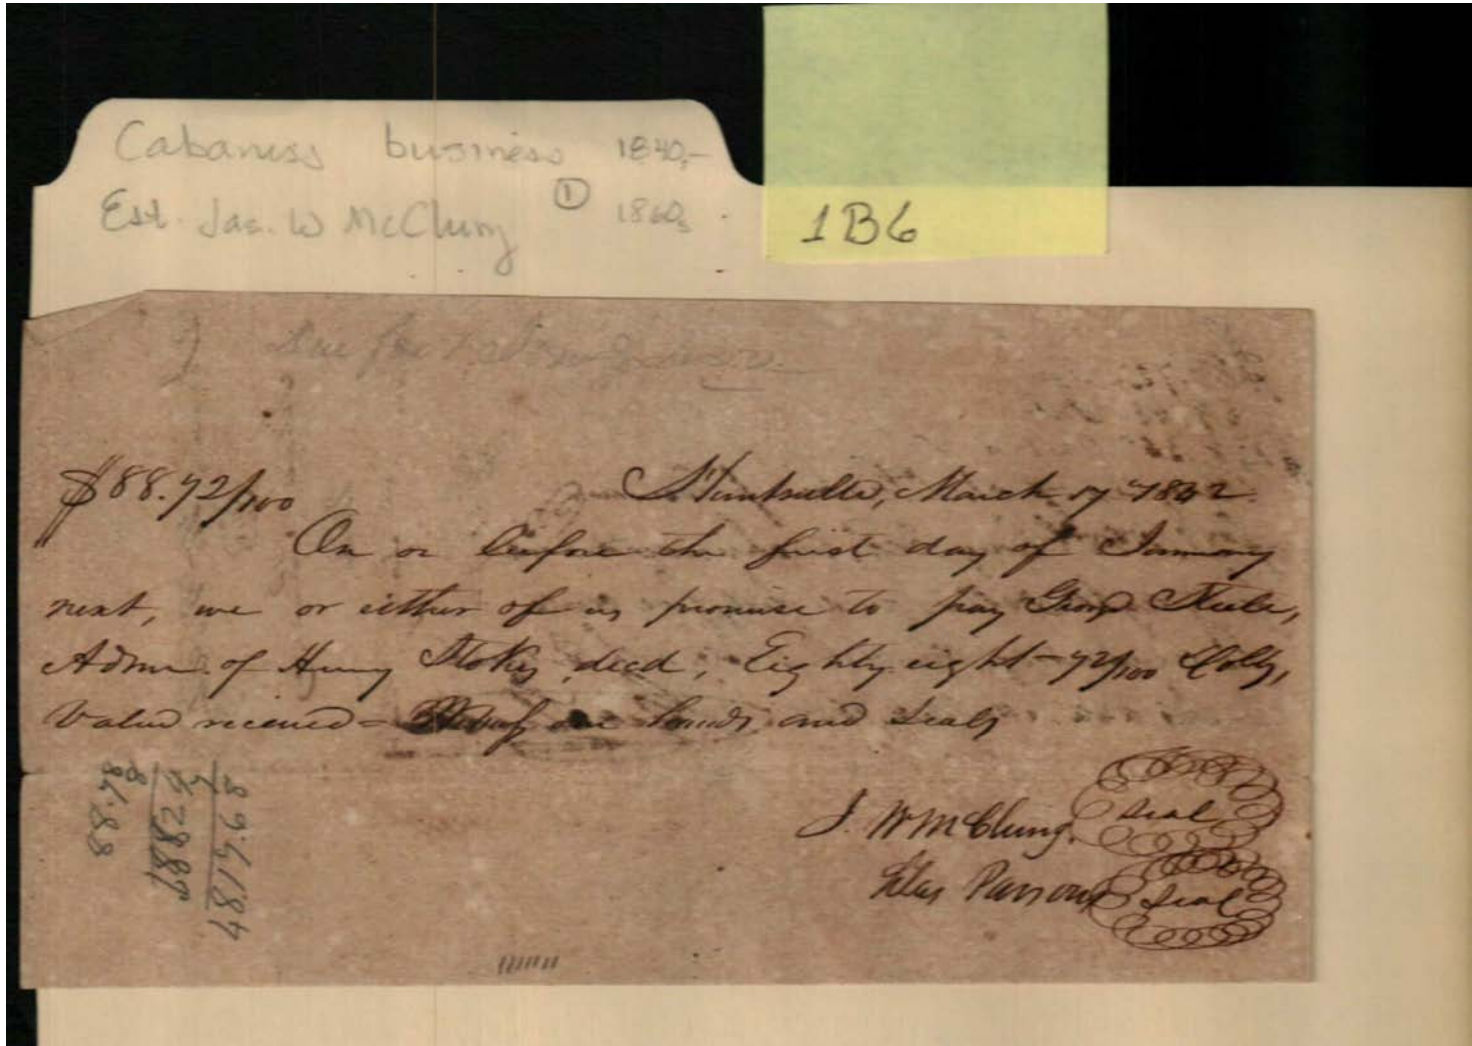 Cabaniss business 1840s-
Est. Jas. W McClung ① 1860s
1B6
$88.72/100 Huntsville, March 17 1842.
On or before the first day of January
next, we or either of us promise to pay George Steele,
Admr. of Henry Stokes, decd, Eighty eight 72/100 Dolls,
Value received - our hands and seals
J. W McClung. Seal
Silas Parsons Seal
88.78
4817.68